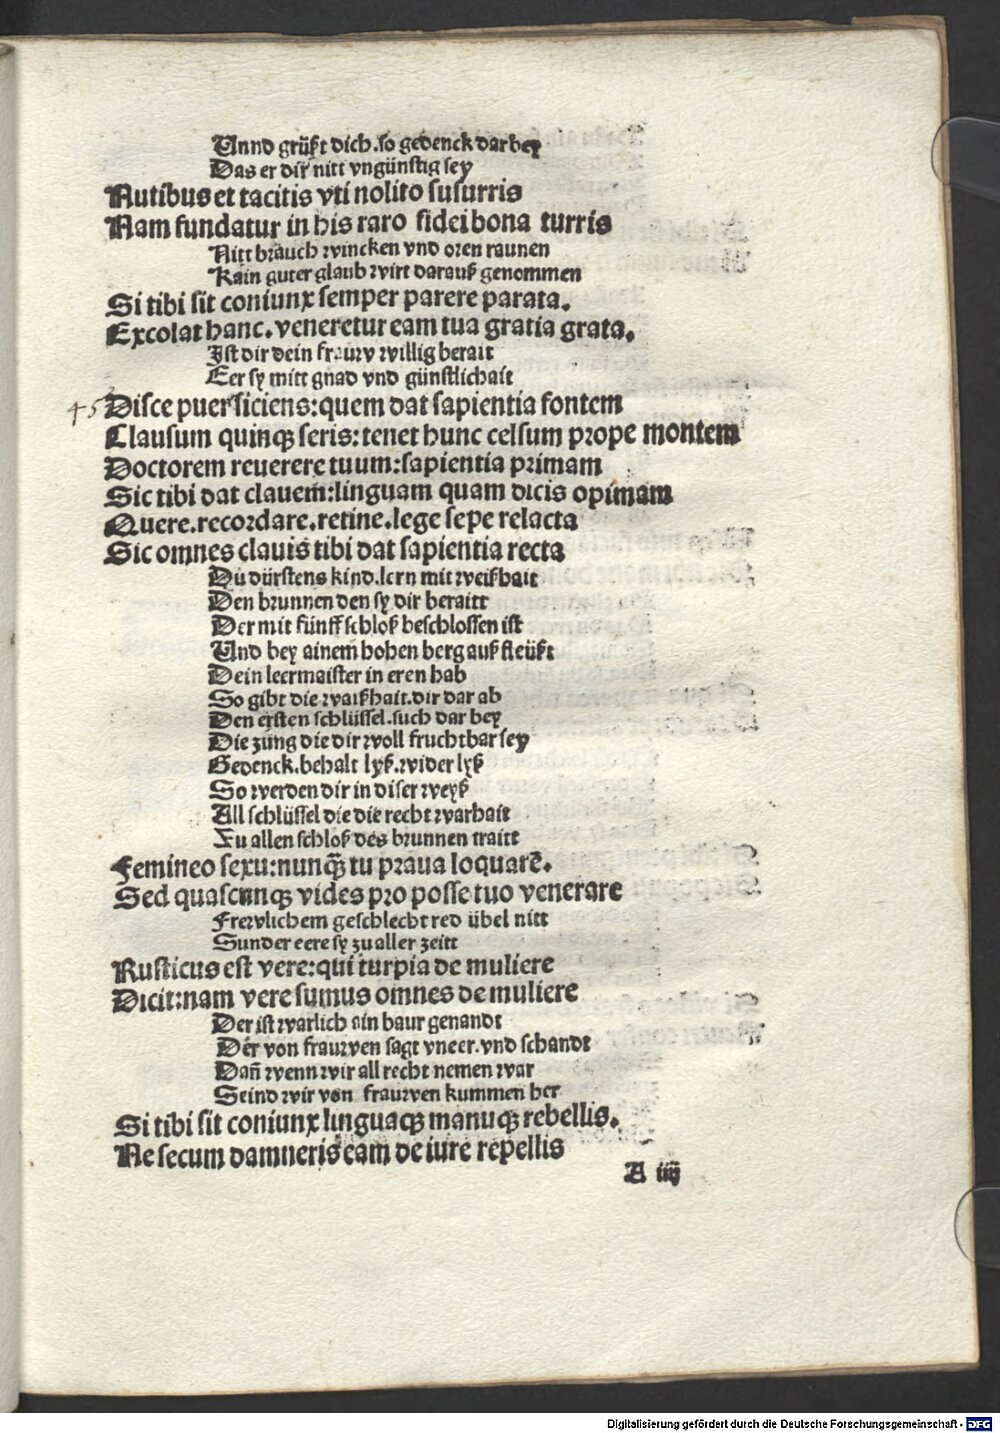 Unnd grüßt dich.so gedenck darbey
Das er dir nitt vngünstig sey
Nutibus et tacitis vti nolito susurris
Nam fundatur in his raro fidei bona turris
Nitt brauch wincken vnd oren raunen
Kain guter glaub wirt darauß genommen
Si tibi sit coniunx semper parere parata.
Excolat hanc.veneretur eam tua gratia grata.
Ist dir dein frauw willig berait
Eer sy mitt gnad vnd günstlichait
45 Disce puer siciens:quem dat sapientia fontem
Clausum quinqꝫ seris:tenet hunc celsum prope montem
Doctorem reuerere tuum:sapientia primam
Sic tibi dat clauem:linguam quam dicis opimam
Quere.recordare.retine.lege sepe relacta
Sic omnes clauis tibi dat sapientia recta
Du dürstens kind.lern mit weißhait
Den brunnen den sy dir beraitt
Der mit fünff schloß beschlossen ist
Und bey ainem hohen berg auß fleüßt
Dein leermaister in eren hab
So gibt die waißhait.dir dar ab
Den ersten schlüssel.such dar bey
Die zung die dir woll fruchtbar sey
Gedenck.behalt lyß.wider lyß
So werden dir in diser weyß
All schlüssel die die recht warhait
Zu allen schloß des brunnen traitt
Femineo sexu:nunqᷓ tu praua loquarē.
Sed quascunqꝫ vides pro posse tuo venerare
Frewlichem geschlecht red übel nitt
Sunder eere sy zu aller zeitt
Rusticus est vere:qui turpia de muliere
Dicit:nam vere sumus omnes de muliere
Der ist warlich ain baur genandt
Der von frauwen sagt vneer.vnd schandt
Dañ wenn wir all recht nemen war
Seind wir von frauwen kummen her
Si tibi sit coniunx linguaqꝫ manuqꝫ rebellis.
Ne secum damneris eam de iure repellis
A iiij
Digitalisierung gefördert durch die Deutsche Forschungsgemeinschaft - DFG